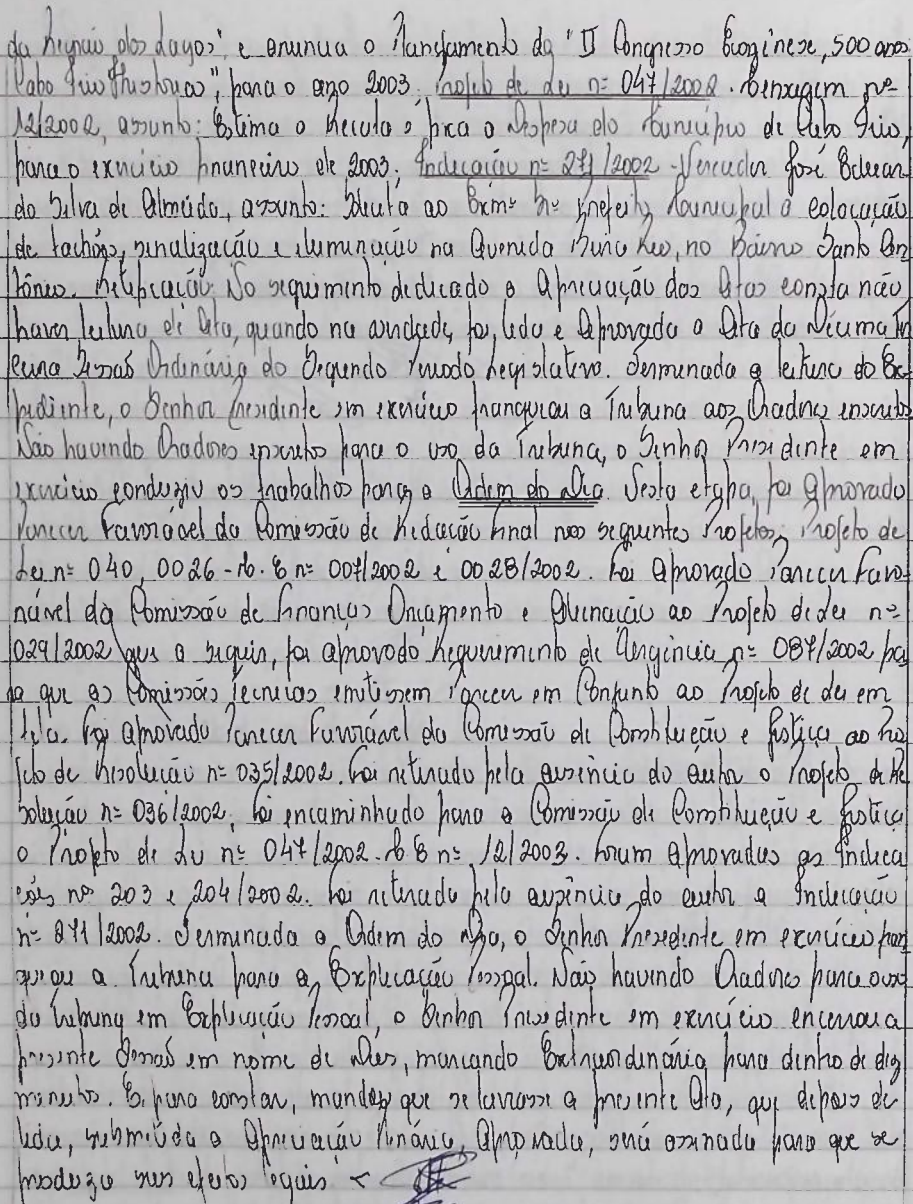 da Região dos Lagos" e anuncia o lançamento do "II Congresso 500 anos
Cabo Frio Histórias", para o ano 2003; Projeto de Lei nº 047/2002. Mensagem nº
12/2002, assunto: Estima a Receita e fixa a Despesa do Município de Cabo Frio,
para o exercício financeiro de 2003; Indicação nº 271/2002 - Vereador José
da Silva de Almeida, assunto: Solicita ao Exmº Sr. Prefeito Municipal a colocação
de tachões, sinalização e iluminação na Avenida no Bairro Santo An
tônio. Retificação: No seguimento dedicado a Apreciação das Atas consta não
haver leitura de Ata, quando na verdade, foi lida e Aprovada a Ata da Décima Ter
ceira Sessão Ordinária do Segundo Período Legislativo. Terminada a leitura do Ex
pediente, o Senhor Presidente em exercício franqueou a Tribuna aos Oradores inscritos
Não havendo Oradores inscritos para o uso da Tribuna, o Senhor Presidente em
exercício conduziu os trabalhos para a Ordem do Dia. Nesta etapa, foi Aprovado
Parecer Favorável da Comissão de Redação Final nos seguintes Projetos; Projeto de
Lei nº 040, 0026 - M. E nº 007/2002 e 0028/2002. Foi Aprovado Parecer Favo
rável da Comissão de Finanças Orçamento e Alienação ao Projeto de Lei nº
029/2002 que a seguir, foi aprovado Requerimento de Urgência nº 087/2002 pa
ra que as Comissões Técnicas emitissem Parecer em Conjunto ao Projeto de Lei em
tela. Foi aprovado Parecer Favorável da Comissão de Constituição e Justiça ao Pro
jeto de Resolução nº 035/2002. Foi retirado pela ausência do autor o Projeto de Re
solução nº 036/2002; Foi encaminhado para a Comissão de Constituição e Justiça
o Projeto de Lei nº 047/2002. M. E nº 12/2003. Foram Aprovadas as Indica
ções nºs 203 e 204/2002. Foi retirada pela ausência do autor a Indicação
nº 271/2002. Terminada a Ordem do Dia, o Senhor Presidente em exercício fran
queou a Tribuna para a Explicação Pessoal. Não havendo Oradores para o uso
da Tribuna em Explicação Pessoal, o Senhor Presidente em exercício encerrou a
presente Sessão em nome de Deus, marcando Extraordinária para dentro de dez
minutos. E, para constar, mandou que se lavrasse a presente Ata, que depois de
lida, submetida a Apreciação Plenária, Aprovada, será assinada para que se
produza seus efeitos legais